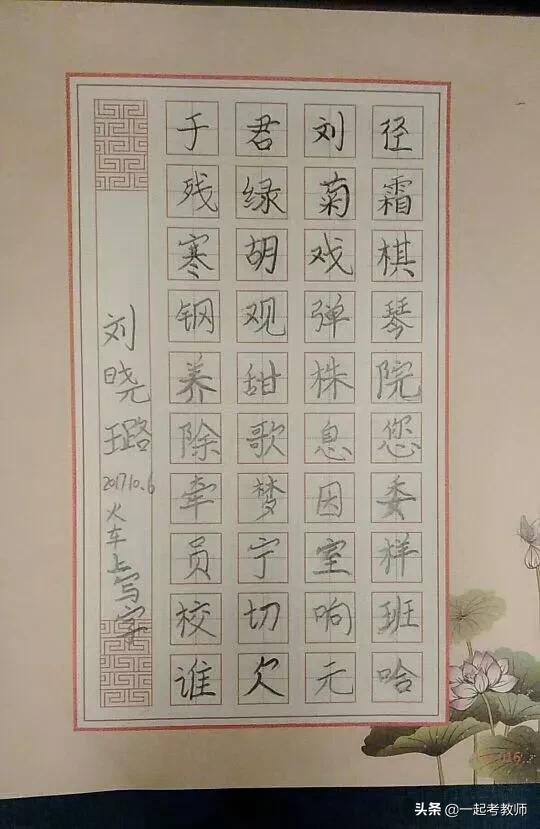 于君刘径
残绿菊霜
寒胡戏棋
钢观弹琴
养甜株院
除歌息您
牵梦因委
员宁室样
校切响班
谁欠元哈
刘晓璐
2017.10.6
火车上写字
116
头条@一起考教师